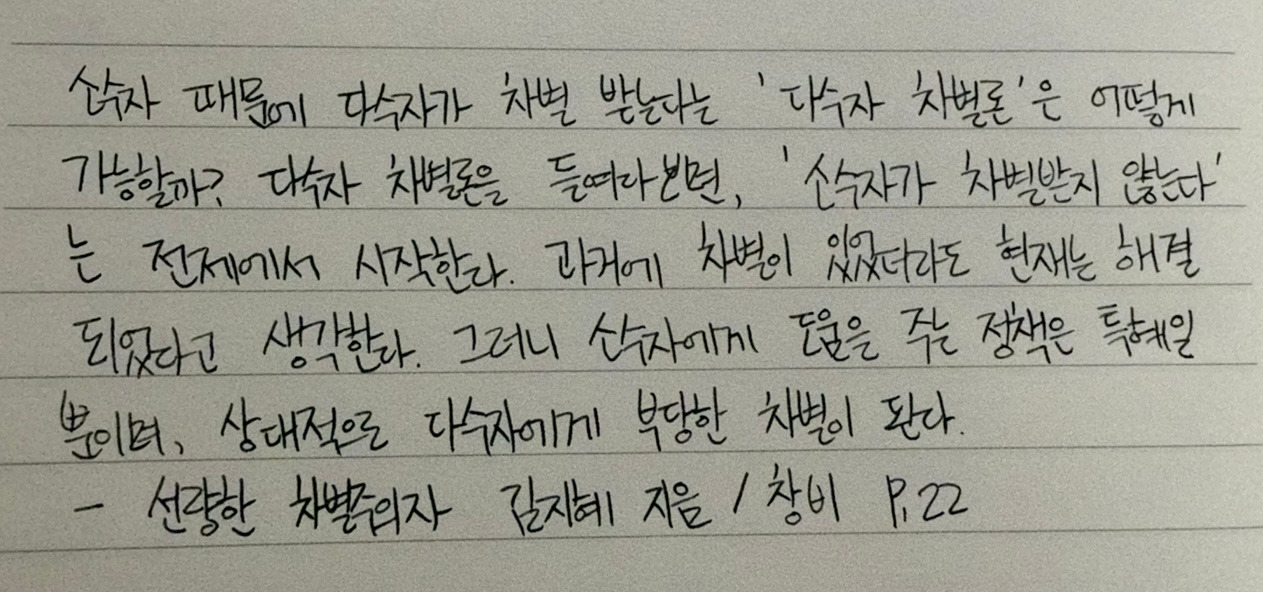 소수자 때문에 다수자가 차별 받는다는 '다수자 차별론'은 어떻게
가능할까? 다수자 차별론을 들여다보면, '소수자가 차별받지 않는다'
는 전제에서 시작한다. 과거에 차별이 있었더라도 현재는 해결
되었다고 생각한다. 그러니 소수자에게 도움을 주는 정책은 특혜일
뿐이며, 상대적으로 다수자에게 부당한 차별이 된다.
- 선량한 차별주의자 김지혜 지음 / 창비 P.22